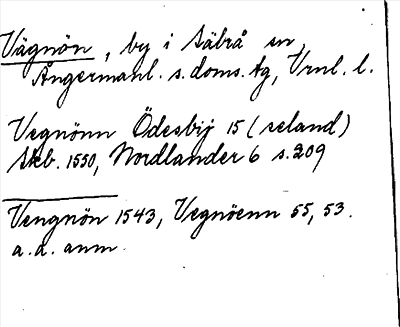 Vägnön, by i Säbrå sn,
Ångermanl. s. doms. tg, Vrnl. l.
Vegnönn Ödesbij 15 (seland)
Skb. 1550, Nordlander 6 s. 209
Vengnön 1543, Vegnöenn 55, 53.
a.a. anm.